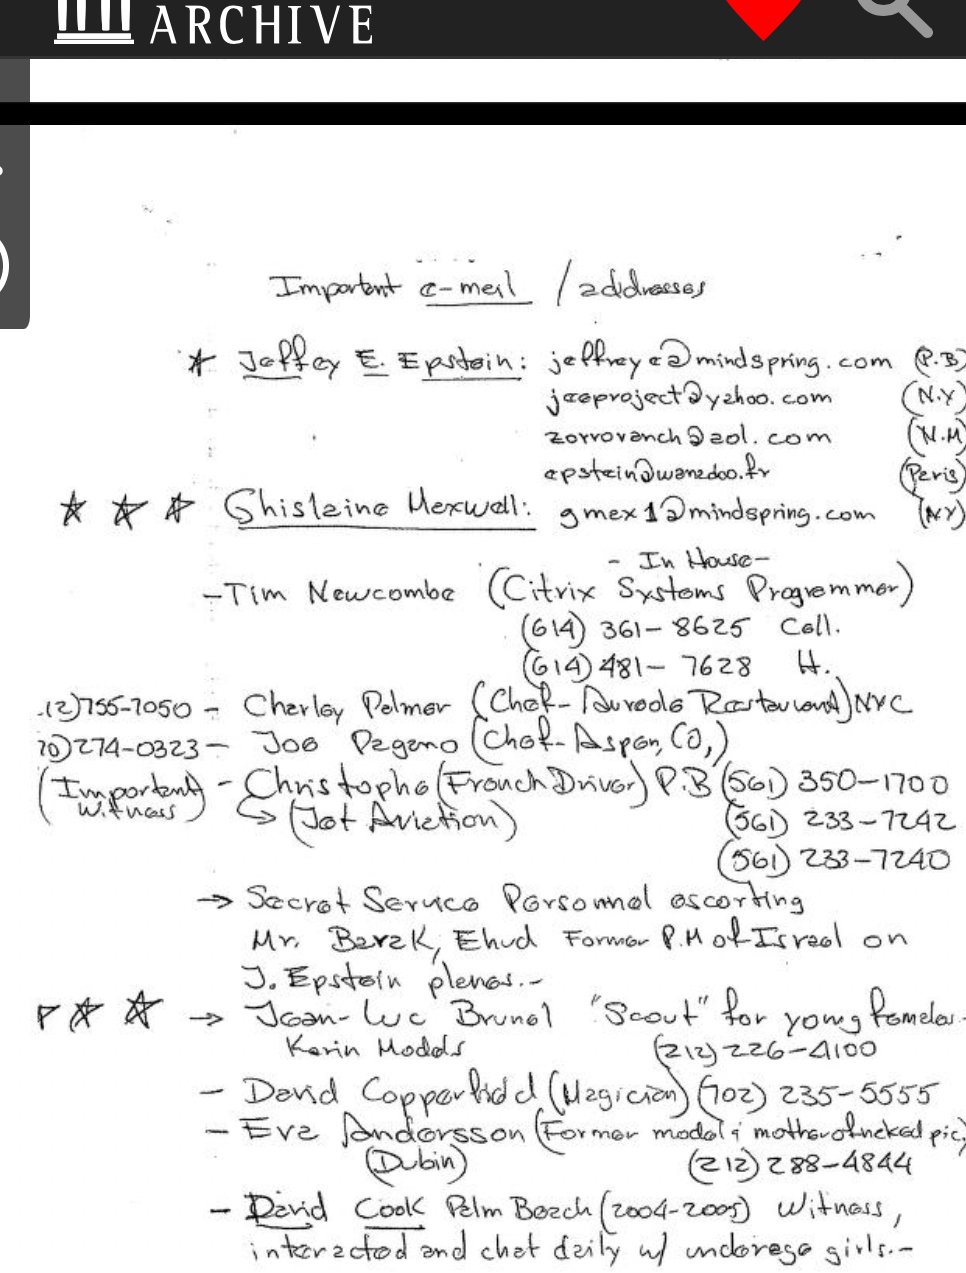 ARCHIVE
Important e-mail / addresses
* Jeffey E. Epstein: jeffreye@mindspring.com (P.B)
jeeproject@yahoo.com (N.Y)
zorroranch@aol.com (N.M
epstein@wanadoo.fr (Paris)
* * * Ghislaine Maxwell: gmax1@mindspring.com (NY)
- In House -
- Tim Newcombe (Citrix Systems Programmer)
(614) 361-8625 Cell.
(614) 481-7628 H.
12)755-7050 - Charley Palmer (Chef- Aureole Restaurant) NYC
70)274-0323 - Joe Pagano (Chef- Aspen, CO,)
(Important Witness) - Christophe (French Driver) P.B (561) 350-1700
(Jet Aviation) (561) 233-7242
(561) 233-7240
→ Secret Service Personnel escorting
Mr. Barak, Ehud Former P.M of Israel on
J. Epstein planes.-
* * * → Jean-Luc Brunel "Scout" for young females.
Karin Models (212) 226-4100
- David Copperfield (Magician) (702) 235-5555
- Eva Andersson (Former model & mother of naked pic,
(Dubin) (212) 288-4844
- David Cook Palm Beach (2004-2005) Witness,
interacted and chat daily w/ underage girls.-